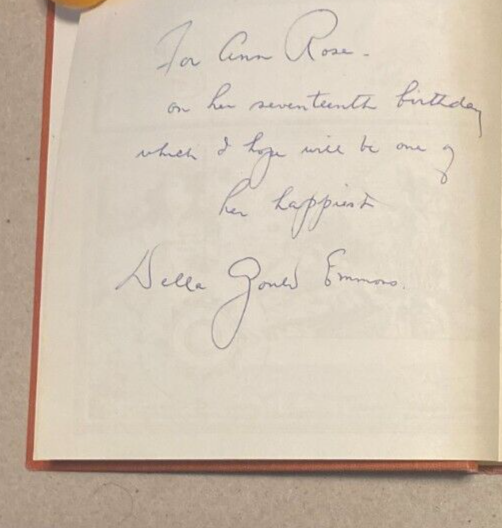 For Ann Rose -
on her seventeenth birthday
which I hope will be one of
her happiest
Della Gould Emmons.